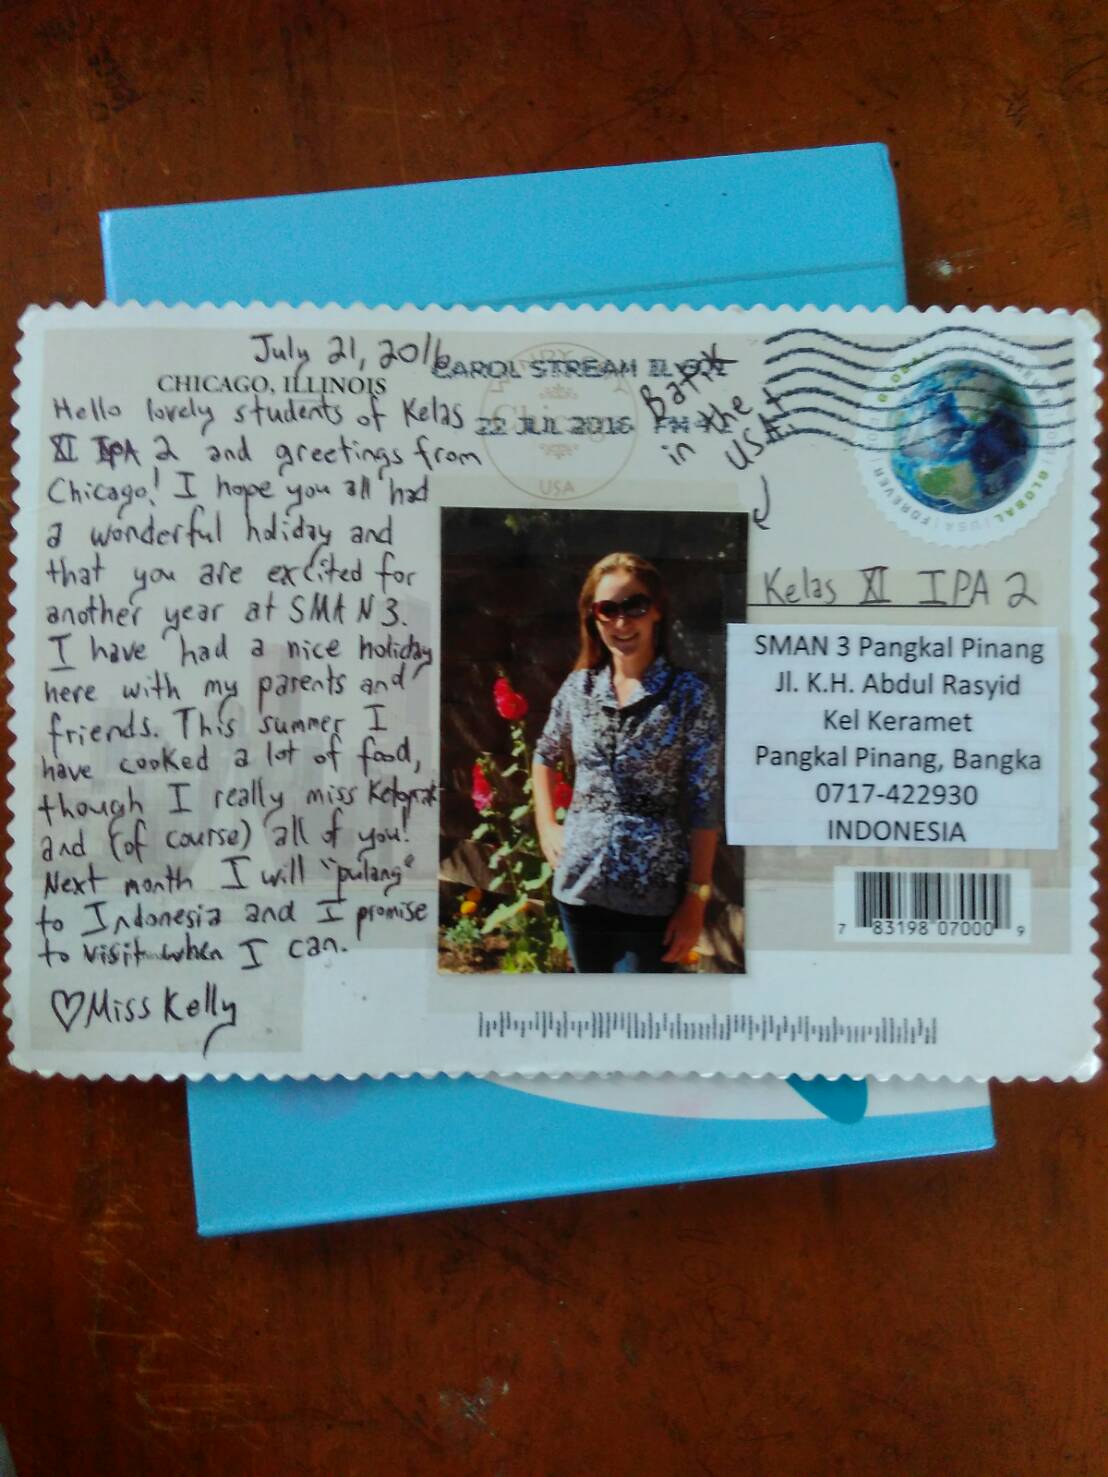 July 21, 2016
CHICAGO, ILLINOIS
Hello lovely students of Kelas
XI IPA 2 and greetings from
Chicago! I hope you all had
a wonderful holiday and
that you are excited for
another year at SMA N 3.
I have had a nice holiday
here with my parents and
friends. This summer I
have cooked a lot of food,
though I really miss Ketoprak
and (of course) all of you!
Next month I will "pulang"
to Indonesia and I promise
to visit when I can.
♡Miss Kelly
CAROL STREAM IL
22 JUL 2016 PM
Chicago
USA
Batik
in the
USA!
GLOBAL USA FOREVER
Kelas XI IPA 2
SMAN 3 Pangkal Pinang
Jl. K.H. Abdul Rasyid
Kel Keramet
Pangkal Pinang, Bangka
0717-422930
INDONESIA
7 83198 07000 9